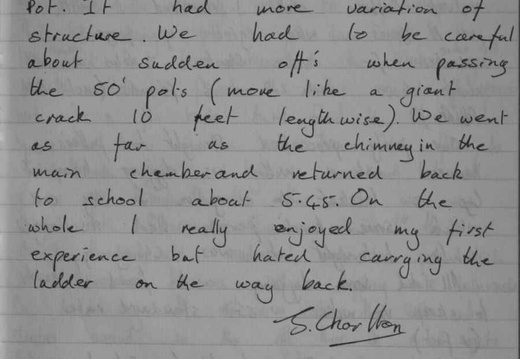 Pot. It had more variation of
structure. We had to be careful
about sudden off's when passing
the 50' pots (more like a giant
crack 10 feet lengthwise). We went
as far as the chimney in the
main chamber and returned back
to school about 5.45. On the
whole I really enjoyed my first
experience but hated carrying the
ladder on the way back.
S. Charlton